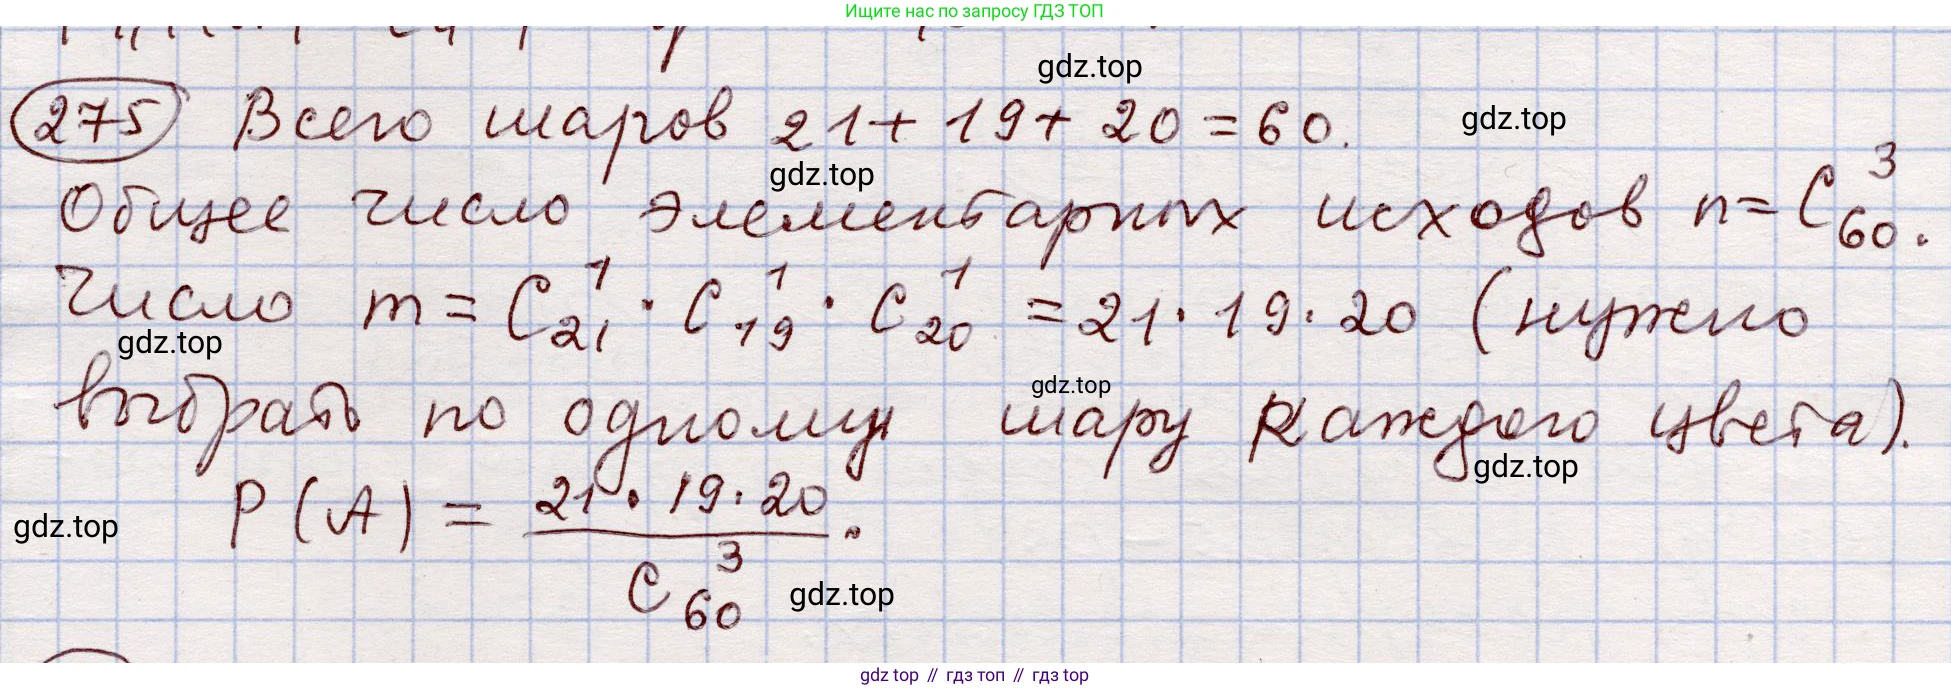 Ищите нас по запросу ГДЗ ТОП
gdz.top
275 Всего шаров 21 + 19 + 20 = 60.
gdz.top
gdz.top
Общее число элементарных исходов n = C₆₀³.
Число m = C₂₁¹ · C₁₉¹ · C₂₀¹ = 21 · 19 · 20 (нужно
gdz.top
gdz.top
выбрать по одному шару каждого цвета).
gdz.top
P(A) = 21 · 19 · 20 / C₆₀³.
gdz.top
gdz.top
gdz.top // гдз топ // гдз.top